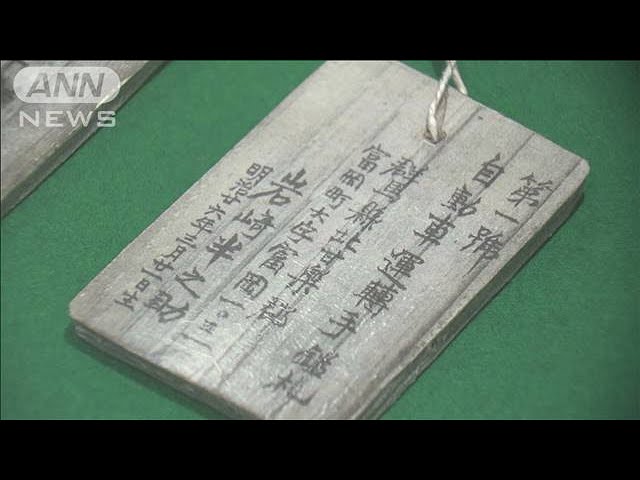 ANN
NEWS
第一號
自動車運轉手鑑札
群馬縣北甘樂郡
富岡町大字富岡
岩崎半之助
明治廿六年三月廿一日生